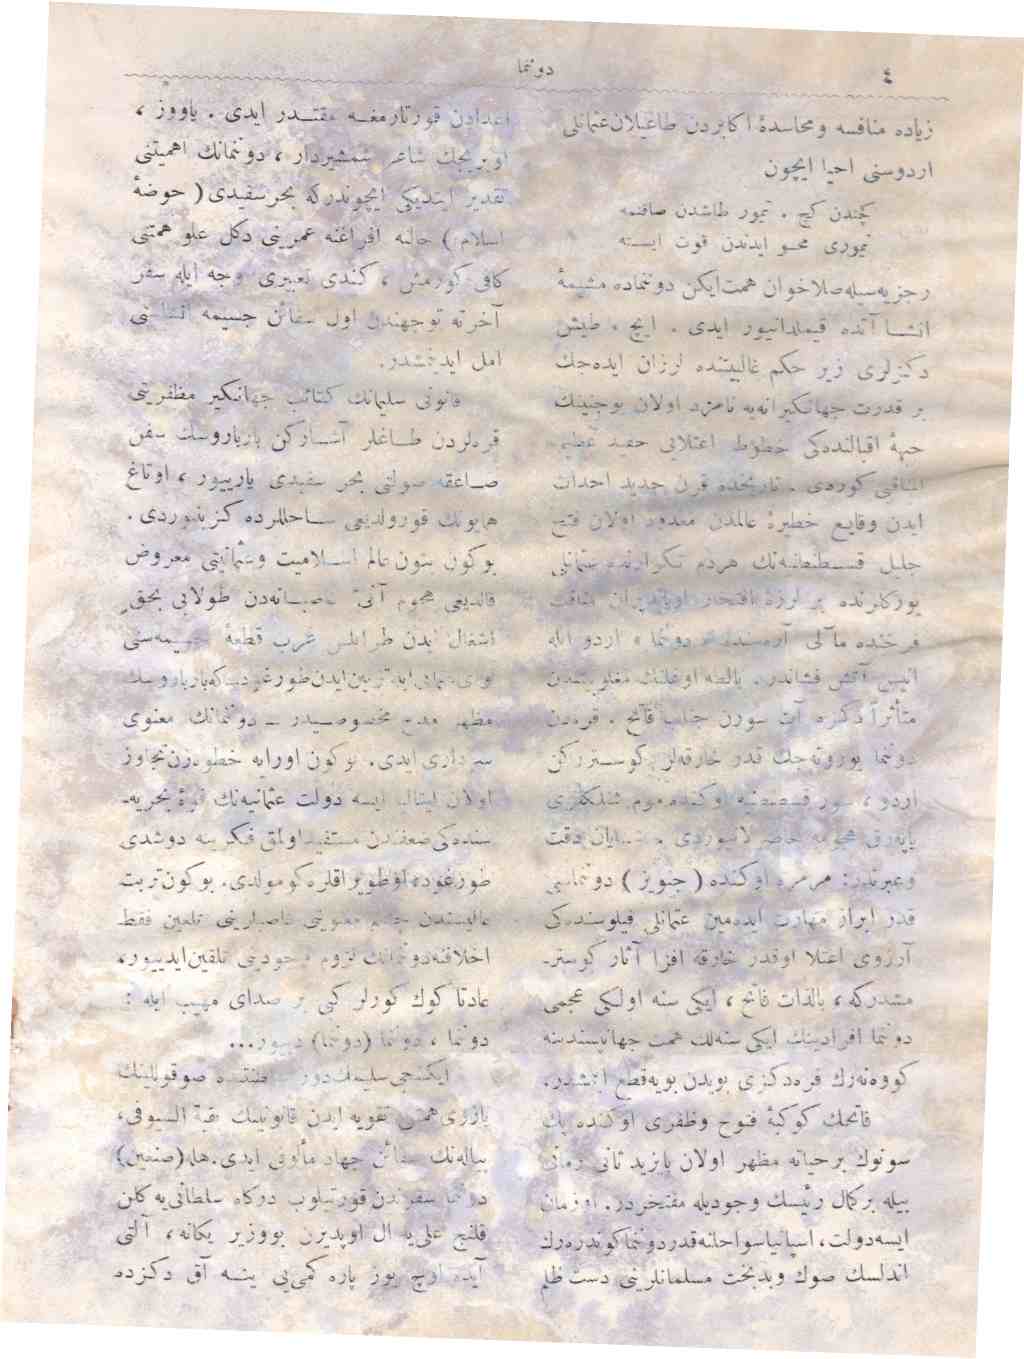 ٤
دوننما
زیاده منافسه ومحاسدهٔ اکابردن طاغیلان عثمانلی
اردوسنی احیا ایچون
کچندن کچ . تیمور طاشدن صاقنمه
تیموری محو ایدندن قوت ایسته
رجزیه‌سیله صلاخوان همت ایکن دوننماده مشیمهٔ
انشا آتده قیملدانیور ایدی . ایچ ، طیش
دکیزلری زیر حکم غالبیتنده لرزان ایده‌جك
بر قدرت جهانکیرانه‌یه نامزد اولان بوجنینك
جبههٔ اقبالنده‌کی خطوط اعتلایی حفید عظیم
کوردی . تاریخده قرن جدید احداث
ایدن وقایع خطیرهٔ عالمدن معدود اولان فتح
جلیل قسطنطنیه‌نك هردم تکرارنده عثمانلی
یورکلرنده بر لرزهٔ افتخار اویاندیران
فرخنده مآلی آره‌سنده « دوننما » اردو ایله
انیس آتش فشاندر . بالطه اوغلنك مغلوبیتندن
متأثراً دکزه آت سورن جناب فاتح . قره‌دن
دوننما یوروته‌جك قدر خارقه‌لر کوستررکن
اردو ، سور قسطنطنیه اوکنده موم
یاپه‌رق هجومه حاضرلانیوردی . شایان دقت
وعبرتدر: مرمره اوکنده ( جنویز ) دوننماسی
قدر ابراز مهارت ایده‌مین عثمانلی فیلوسنده‌کی
آرزوی اعتلا اوقدر خارقه افزا آثار کوستر-
مشدرکه ، بالذات فاتح ، ایکی سنه اولکی عجمی
دوننما افرادینك ایکی سنه‌لك همت جهانپسندینه
کووه‌نه‌رك قره‌دکزی بویدن بویه قطع ایتمشدر.
فاتحك کوکبهٔ فتوح وظفری اوکنده پك
سونوك برحیاته مظهر اولان بایزید ثانی زمانی
بیله برکمال رئیسك وجودیله مفتخردر. اوزمان
ایسه دولت، اسپانیا سواحلنه قدر دوننما کوندره‌رك
اندلسك صوك وبدبخت مسلمانلرینی دست ظلم
اعدادن قورتارمغه مقتدر ایدی . یاووز ،
شاعر شمشیردار ، دوننمانك اهمیتنی
تقدیر ایتدیکی ایچوندرکه بحرسفیدی ( حوضهٔ
اسلام ) حالنه افراغنه عمرینی دکل علو همتنی
کافی کورمش ، کندی تعبیری وجه ایله سفر
آخرته توجهندن اول سفائن جسیمه انشاسنی
امل ایدنمشدر.
قانونی سلیمانك کتائب جهانکیر مظفریتی
قره‌لردن طاغلر آشارکن بارباروسك سفن
صاعقه صولتی بحر سفیدی یارییور ، اوتاغ
همایونك قورولدیغی ساحللرده کزینیوردی .
بوکون بتون عالم اسلامیت وعثمانیتی معروض
قالدیغی هجوم آنیٔ غاصبانه‌دن طولایی بحق
اشغال ایدن طرابلس غرب قطعهٔ جسیمه‌سی
لوای عثمانی ایله تزیین ایدن طورغودجه که بارباروسك
مظهر مدح مخصوصیدر — دوننمانك معنوی
سرداری ایدی. بوکون اورایه خطوه‌زن تجاوز
اولان ایتالیا ایسه دولت عثمانیه‌نك قوهٔ بحریه-
سنده‌کی ضعفندن مستفید اولمق فکرینه دوشدی
طورغودده اوطوپراقلره کومولدی. بوکون تربت
عالیسندن جسم معنویتی غاصبلرینی تلعین فقط
اخلافنه دوننمانك لزوم وجودینی تلقین ایدییور،
عادتا کوك کورلر کبی بر صدای مهیب ایله :
دوننما ، دوننما (دوننما) دییور...
ایکنجی سلیمك دور سلطنتنده صوقوللینك
بازوی همتنی تقویه ایدن قانونینك بقیة السیوفی،
پیاله‌نك سفائن جهاد مألوفی ایدی. هله (صنغین)
دوننما سفرندن قورتیلوب درکاه سلطانی‌یه کلن
قلنج علی‌یه ال اوپدیرن بووزیر یکانه ، آلتی
آیده اوچ یوز پاره کمی‌یی ینه آق دکزده